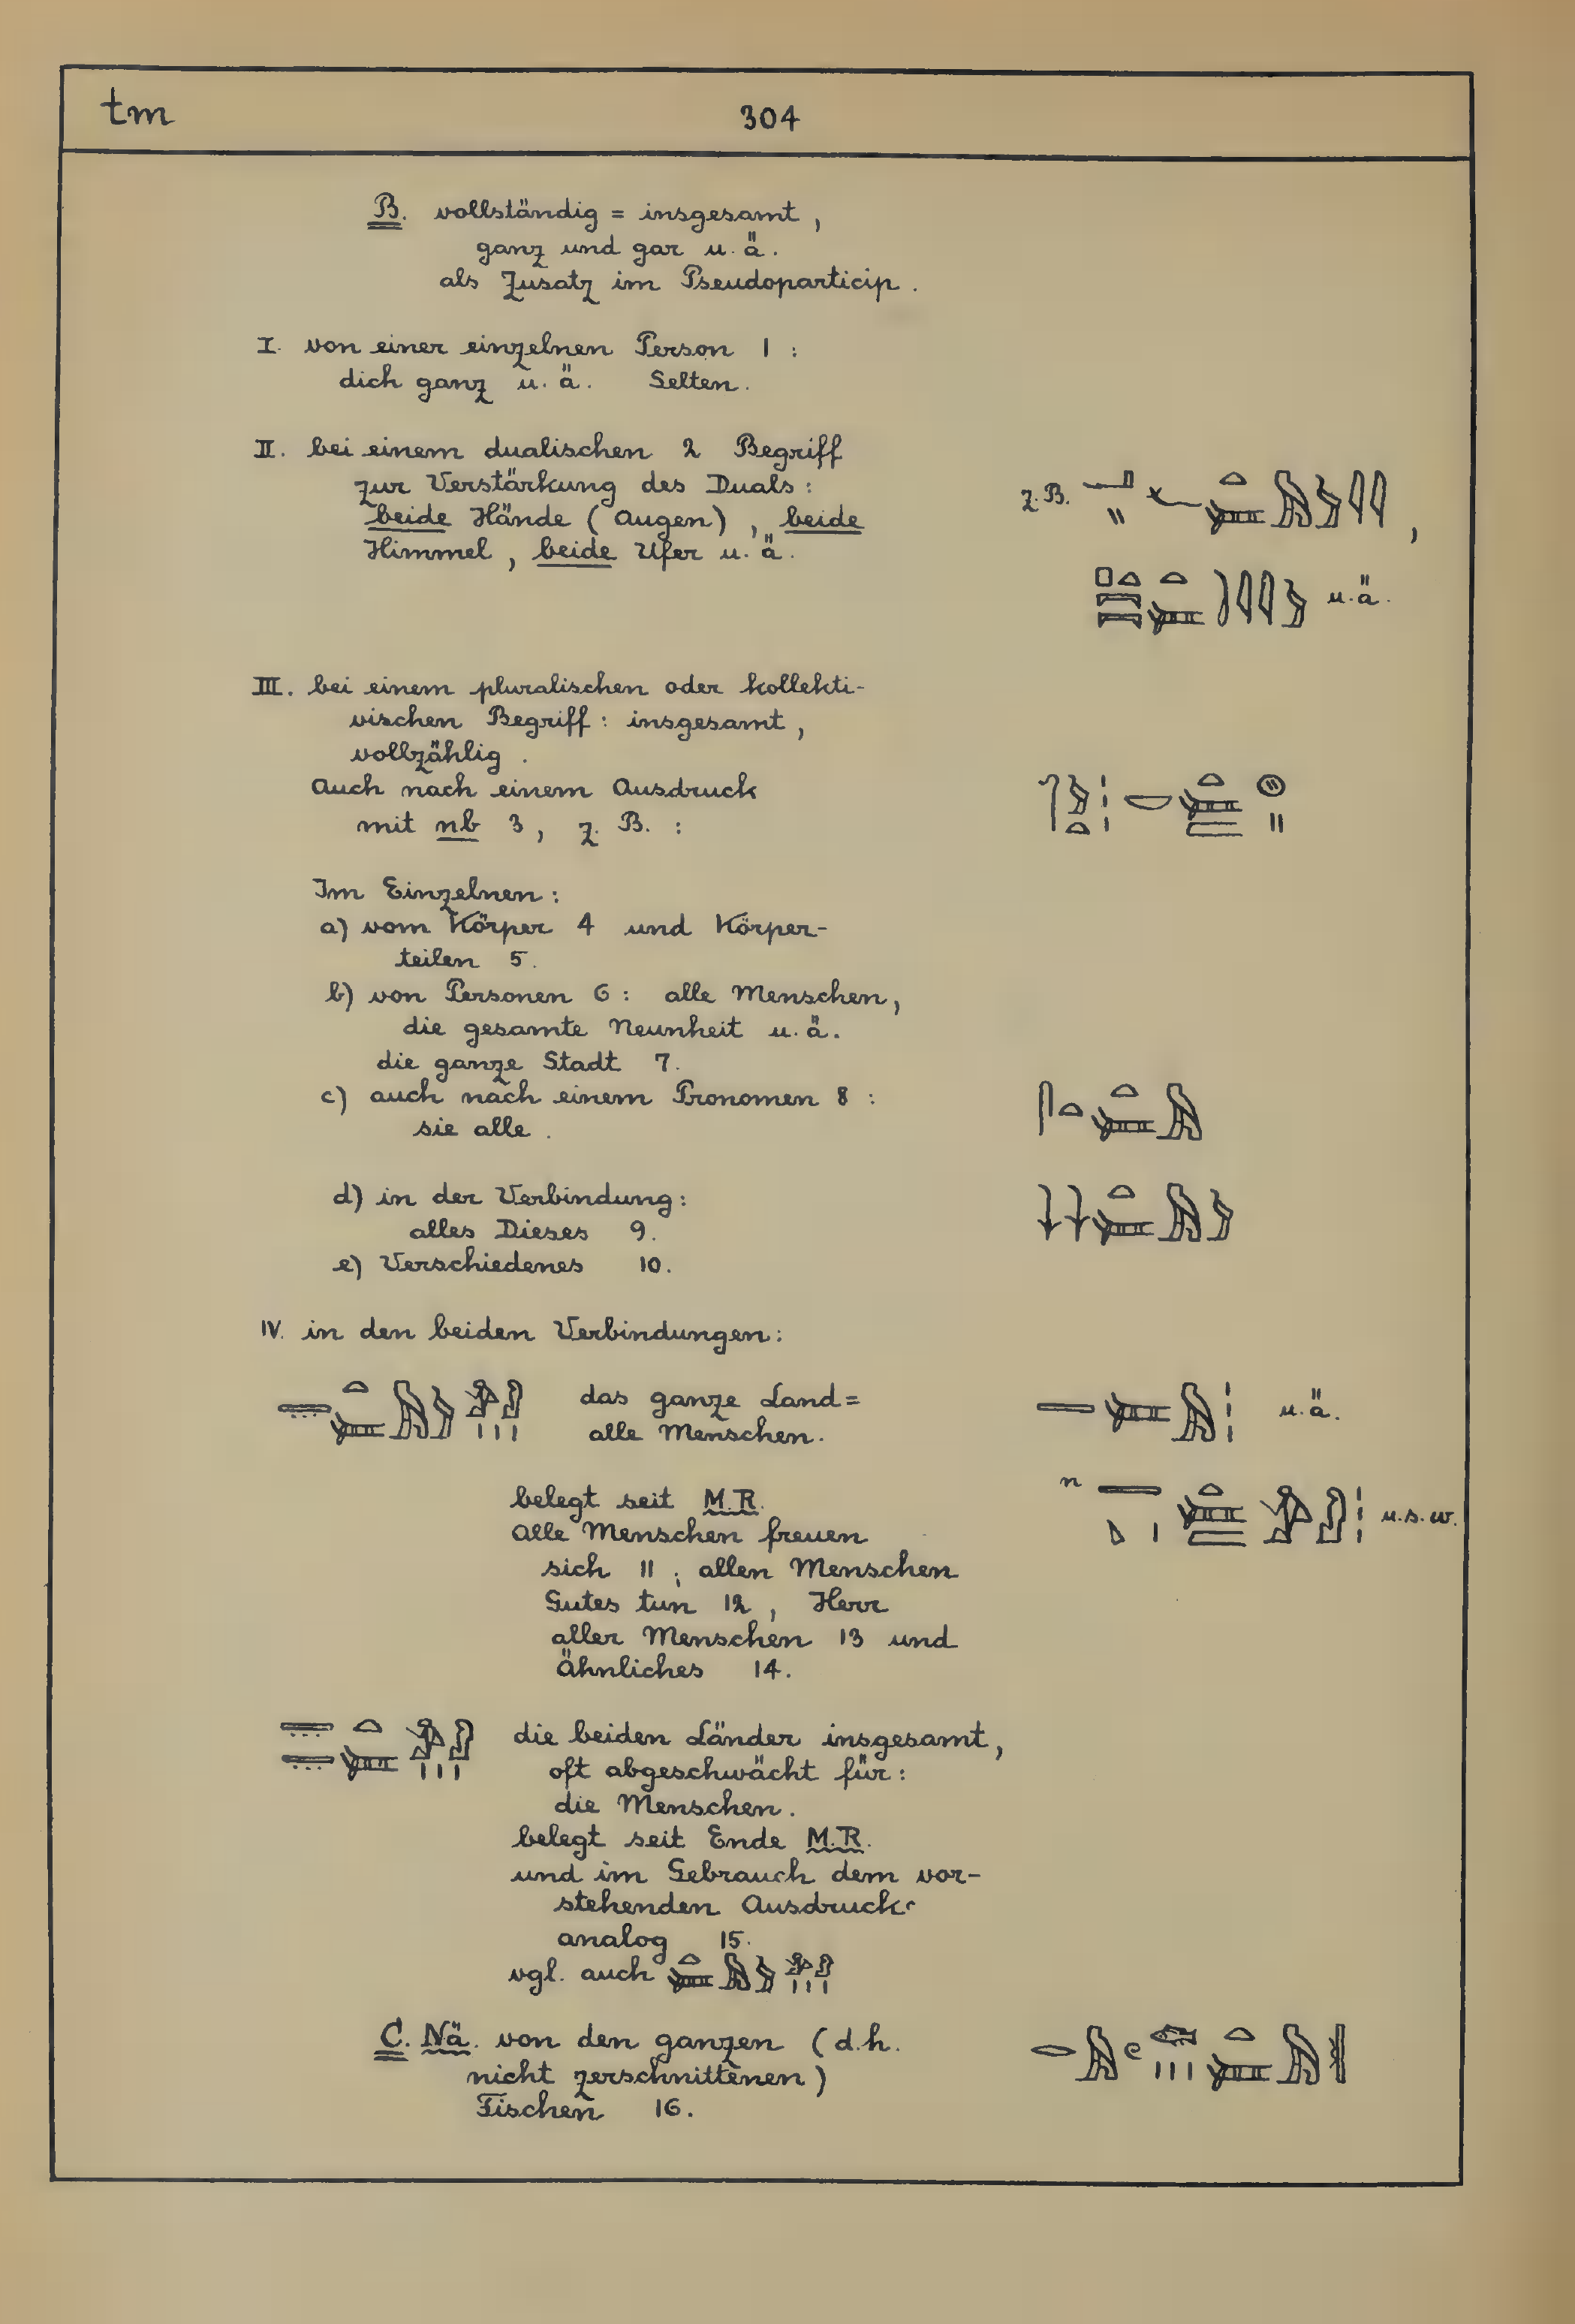 tm
304
B. vollständig = insgesamt,
ganz und gar u. ä.
als Zusatz im Pseudoparticip.
I. von einer einzelnen Person 1 :
dich ganz u. ä. Selten.
II. bei einem dualischen 2 Begriff
zur Verstärkung des Duals :
z. B.
beide Hände (Augen), beide
Himmel, beide Ufer u. ä.
u. ä.
III. bei einem pluralischen oder kollekti-
vischen Begriff : insgesamt,
vollzählig.
Auch nach einem Ausdruck
mit nb 3, z. B. :
Im Einzelnen :
a) vom Körper 4 und Körper-
teilen 5.
b) von Personen 6 : alle Menschen,
die gesamte Neunheit u. ä.
die ganze Stadt 7.
c) auch nach einem Pronomen 8 :
sie alle.
d) in der Verbindung :
alles Dieses 9.
e) Verschiedenes 10.
IV. in den beiden Verbindungen :
das ganze Land =
u. ä.
alle Menschen.
belegt seit M.R.
n
u. s. w.
alle Menschen freuen
sich 11 ; allen Menschen
Gutes tun 12, Herr
aller Menschen 13 und
Ähnliches 14.
die beiden Länder insgesamt,
oft abgeschwächt für :
die Menschen.
belegt seit Ende M.R.
und im Gebrauch dem vor-
stehenden Ausdruck
analog 15.
vgl. auch
C. Nä. von den ganzen (d. h.
nicht zerschnittenen)
Fischen 16.